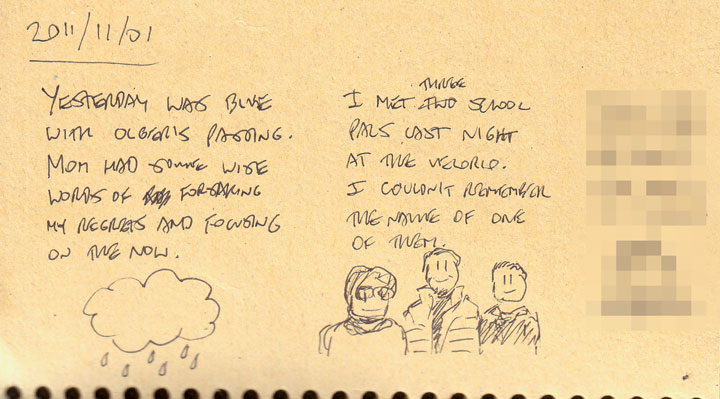 2011/11/01
YESTERDAY WAS BLUE
WITH OLGER'S PASSING.
MOM HAD SOME WISE
WORDS OF FORSAKING
MY REGRETS AND FOCUSING
ON THE NOW.
THREE
I MET TWO SCHOOL
PALS LAST NIGHT
AT THE VELORLD.
I COULDN'T REMEMBER
THE NAME OF ONE
OF THEM.